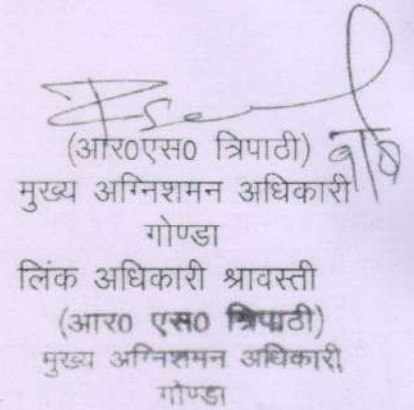 (आर0एस0 त्रिपाठी)
मुख्य अग्निशमन अधिकारी
गोण्डा
लिंक अधिकारी श्रावस्ती
(आर0 एस0 त्रिपाठी)
मुख्य अग्निशमन अधिकारी
गोण्डा